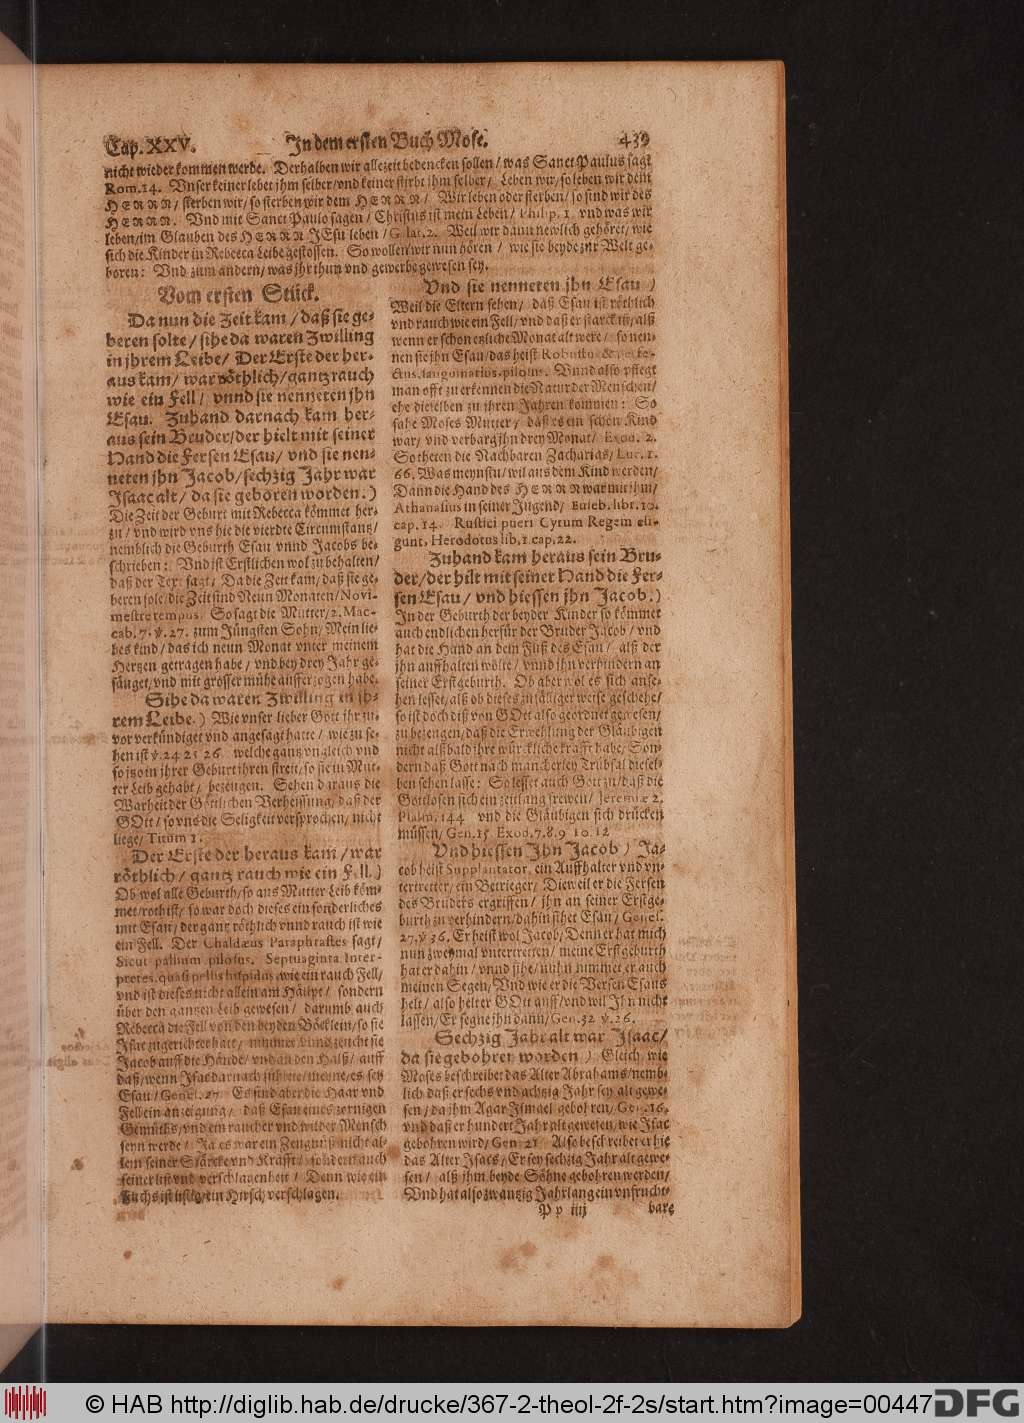 Cap. XXV. In dem ersten Buch Mose. 439
nicht wieder kommen werde. Derhalben wir allezeit bedencken sollen/ was Sanct Paulus sagt
Rom. 14. Unser keiner lebet jhm selber/ vnd keiner stirbt jhm selber/ Leben wir/ so leben wir dem
HERRN/ sterben wir/ so sterben wir dem HERRN/ Wir leben oder sterben/ so sind wir des
HERRN. Vnd mit Sanct Paulo sagen/ Christus ist mein Leben/ Philip. 1. vnd was wir
leben/ im Glauben des HERRN JEsu leben/ Galat. 2. Weil wir dann newlich gehöret/ wie
sich die Kinder in Rebecca Leibe gestossen. So wollen wir nun hören/ wie sie beyde zur Welt ge-
boren: Vnd zum andern/ was jhr thun vnd gewerbe gewesen sey.
Vom ersten Stück.
Da nun die Zeit kam/ daß sie ge-
beren solte/ sihe da waren Zwilling
in jhrem Leibe/ Der Erste der her-
aus kam/ war röthlich/ gantz rauch
wie ein Fell/ vnnd sie nenneten jhn
Esau. Zuhand darnach kam her-
aus sein Bruder/ der hielt mit seiner
Hand die Fersen Esau/ vnd sie nen-
neten jhn Jacob/ sechzig Jahr war
Isaac alt/ da sie geboren worden.)
Die Zeit der Geburt mit Rebecca kömmet her-
zu/ vnd wird vns hie die vierdte Circumstantz/
nemblich die Geburth Esau vnnd Jacobs be-
schrieben: Vnd ist Erstlichen wol zu behalten/
daß der Text sagt/ Da die Zeit kam/ daß sie ge-
beren sole/ die Zeit sind Neun Monaten/ Novi-
mestre tempus. So sagt die Mutter/ 2. Mac-
cab. 7. v. 27. zum Jüngsten Sohn/ Mein lie-
bes kind/ das ich neun Monat vnter meinem
Hertzen getragen habe/ vnd bey drey Jahr ge-
säuget/ vnd mit grosser mühe aufferzogen habe.
Sihe da waren Zwilling in jh-
rem Leibe.) Wie vnser lieber Gott jhr zu-
vor verkündiget vnd angesagt hatte/ wie zu se-
hen ist v. 24 25 26 welche gantz vngleich vnd
so jtzo in jhrer Geburt jhren streit/ so sie in Mut-
ter Leib gehabt/ bezeugen. Sehen daraus die
Warheit der Göttlichen Verheissung/ daß der
GOtt/ so vns die Seligkeit versprochen/ nicht
liege/ Titum 1.
Der Erste der heraus kam/ war
röthlich/ gantz rauch wie ein Fell.)
Ob wol alle Geburth/ so aus Mutter Leib köm-
met/ roth ist/ so war doch dieses ein sonderliches
mit Esau/ der gantz röthlich vnnd rauch ist wie
ein Fell. Der Chaldæus Paraphrastes sagt/
Sicut pallium pilosus. Septuaginta Inter-
pretes, quasi pellis hispidus, wie ein rauch Fell/
vnd ist dieses nicht allein am Häupt/ sondern
über den gantzen Leib gewesen/ darumb auch
Rebecca die Fell von den beyden Böcklein/ so sie
Isac zugerichtet hatt/ nimmet vnnd zeucht sie
Jacob auff die Hände/ vnd an den Halß/ auff
daß/ wenn Isac darnach fühlete/ meyne/ es sey
Esau/ Genes. 27. Es sind aber die Haar vnd
Fell ein anzeigung/ daß Esau eines zornigen
Gemüths/ vnd ein raucher vnd wilder Mensch
seyn werde/ Ja es war ein Zeugnüß nicht al-
lein seiner Stärcke vnd Krafft/ sondern auch
seiner list vnd verschlagenheit/ Denn wie ein
Fuchs ist listig/ ein Hirsch verschlagen.
Vnd sie nenneten jhn Esau)
Weil die Eltern sehen/ daß Esau ist röthlich
vnd rauch wie ein Fell/ vnd daß er starck ist/ alß
wenn er schon etzliche Monat alt were/ so nen-
nen sie jhn Esau/ das heist Robustus & perfe-
ctus, sanguinarius, pilosus. Vnnd also pflegt
man offt zu erkennen die Natur der Menschen/
ehe dieselben zu jhren Jahren kommen: So
sahe Moses Mutter/ daß es ein schön Kind
war/ vnd verbarg jhn drey Monat/ Exod. 2.
So theten die Nachbaren Zacharias/ Luc. 1.
66. Was meynstu/ wil aus dem Kind werden/
Dann die Hand des HERRN war mit jhm/
Athanasius in seiner Jugend/ Euseb. libr. 10.
cap. 14. Rustici pueri Cyrum Regem eli-
gunt, Herodotus lib. 1. cap. 22.
Zuhand kam heraus sein Bru-
der/ der hilt mit seiner Hand die Fer-
sen Esau/ vnd hiessen jhn Jacob.)
In der Geburth der beyder Kinder so kömmet
auch endlichen herfür der Bruder Jacob/ vnd
hat die Hand an dem Fuß des Esau/ alß der
jhn auffhalten wolte/ vnnd jhn verhindern an
seiner Erstgeburth. Ob aber wol es sich anse-
hen lesset/ alß ob dieses zufälliger weise geschehe/
so ist doch diß von GOtt also geordnet gewesen/
zu bezeugen/ daß die Erwehlung der Gläubigen
nicht alßbald jhre würckliche krafft habe/ Son-
dern daß Gott nach mancherley Trübsal diesel-
ben sehen lasse: So lesset auch Gott zu/ daß die
Gottlosen sich ein zeitlang frewen/ Jeremiæ 2.
Psalm. 144 vnd die Gläubigen sich drücken
müssen/ Gen. 15 Exod. 7. 8. 9 10. 12
Vnd hiessen Jhn Jacob) Ja-
cob heist Supplantator, ein Auffhalter vnd vn-
tertretter/ ein Betrieger/ Dieweil er die Fersen
des Bruders ergriffen/ jhn an seiner Erstge-
burth zu verhindern/ dahin sihet Esau/ Genes.
27. v. 36. Er heist wol Jacob/ Denn er hat mich
nun zweymal vntertretten/ meine Erstgeburth
hat er dahin/ vnnd sihe/ nuhn nimmet er auch
meinen Segen/ Vnd wie er die Versen Esaus
helt/ also helter GOtt auff/ vnd wil Jhn nicht
lassen/ Er segne jhn dann/ Gen. 32 v. 26.
Sechzig Jahr alt war Isaac/
da sie gebohren worden) Gleich/ wie
Moses beschreibet das Alter Abrahams/ nemb-
lich daß er sechs vnd achtzig Jahr sey alt gewe-
sen/ da jhm Agar Ismael gebohren/ Gen. 16.
vnd daß er hundert Jahr alt gewesen/ wie Isac
gebohren wird/ Gen. 21 Also beschreibet er hie
das Alter Isacs/ Er sey sechzig Jahr alt gewe-
sen/ alß jhm beyde Söhne gebohren werden/
Vnd hat also zwantzig Jahr lang ein vnfrucht-
Pp iiij bare
© HAB http://diglib.hab.de/drucke/367-2-theol-2f-2s/start.htm?image=00447
DFG